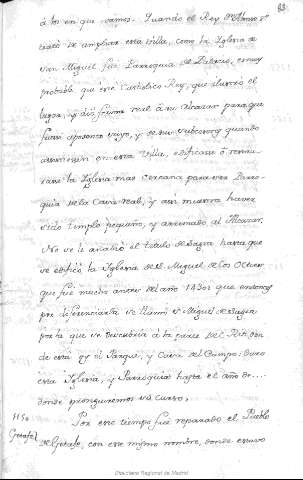 83
á los en que vamos. Quando el Rey Dn Alonso 6º
trató de ampliar esta Villa, como la Iglesia de
San Miguel fué Parroquia de Palacio, es muy
probable que este Catholico Rey, que ilustró el
y dió forma real á su Alcazar para que
fuese aposento suyo, y de sus subcesores quando
asistiesen en esta Villa, edificase ó renovase
la Iglesia mas cercana para ser Parroquia
de la Casa real, y así muestra haver
sido templo pequeño, y arrimado al Alcazar.
No se le añadió el titulo de Sagra hasta que
se edificó la Iglesia de Sn Miguel de los Octoes
que fué mucho antes del año 1430 que entonces
por diferenciarla se llamó Sn Miguel de Sagra
por la que se descubria á la parte del
de esta y el Parque, y Casa del Campo. Duró
esta Iglesia, y Parroquia hasta el año de....
donde proseguiremos su curso.
Por este tiempo fué reparado el Pueblo
Getafe
de Getafe, con este mismo nombre, donde estavo
Biblioteca Regional de Madrid